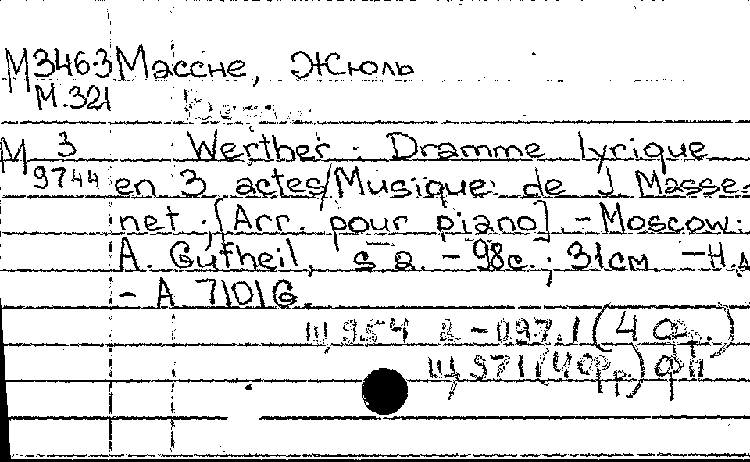 М 3463 Массне, Жюль
М.321
М 3 Werther : Dramme lyrique
9744 en 3 actes/Musique: de J. Masse-
net ; [Arr. pour piano]. - Moscow:
A. Gutheil, s a. - 98с. ; 31см. - Н.д
- A. 7101 G.
Щ 954 2-097.1 (4 фр.)
Щ 571 (4 фр.)